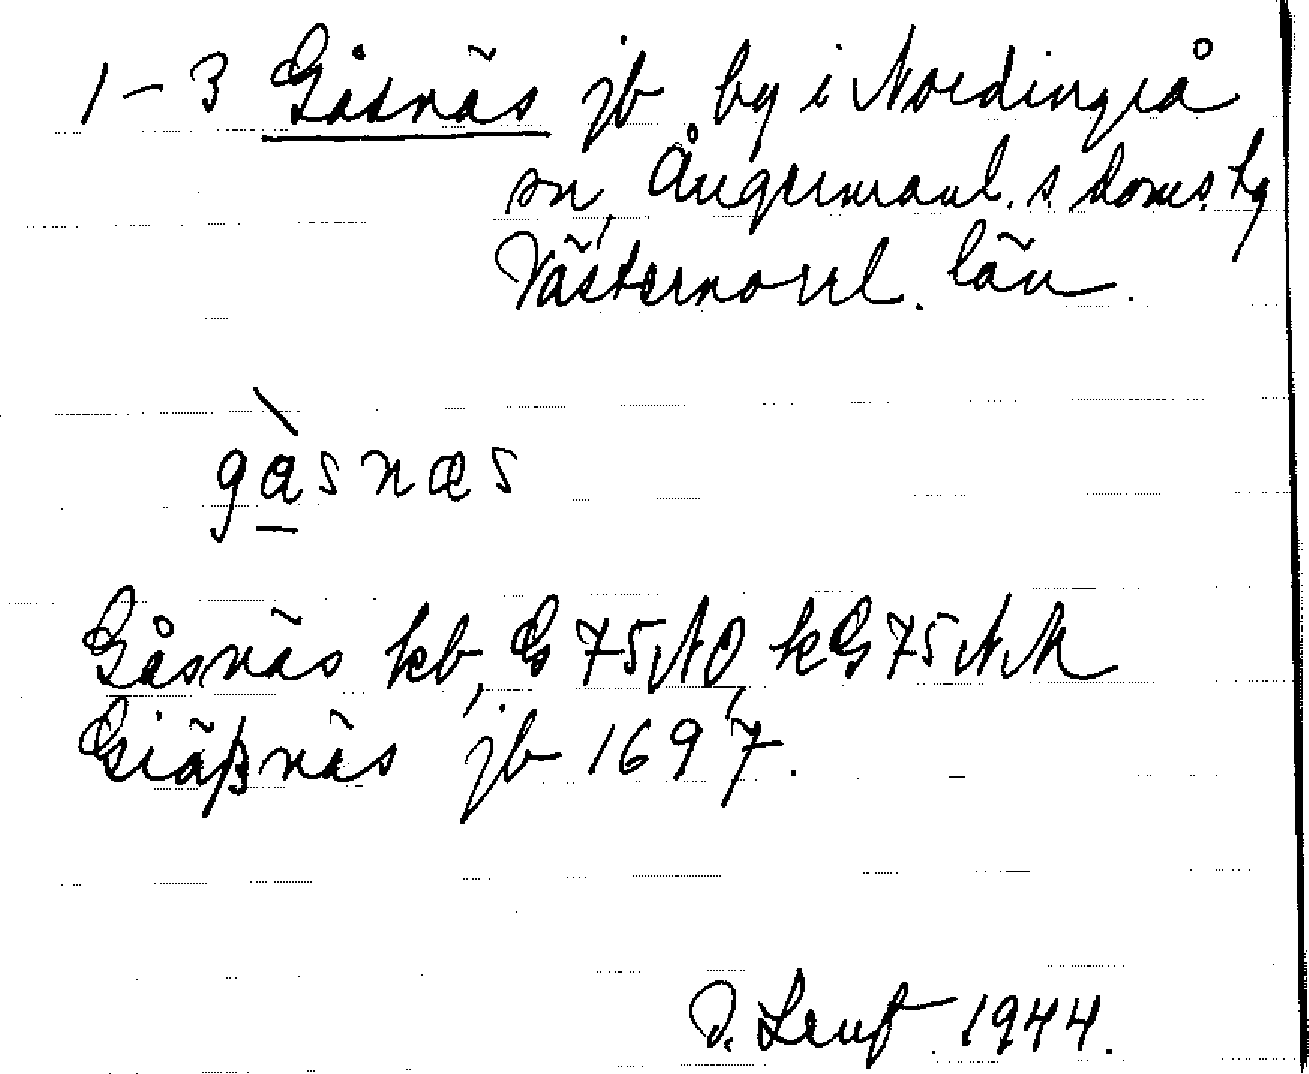 1-3 Gåsnäs jb by i Nordingrå
sn, Ångermanl. s. doms. tg
Västernorrl. län.
gàsnæs
Gåsnäs kb, G 75 NO, kG 75 NM
Giäßnäs jb 1697.
1944.